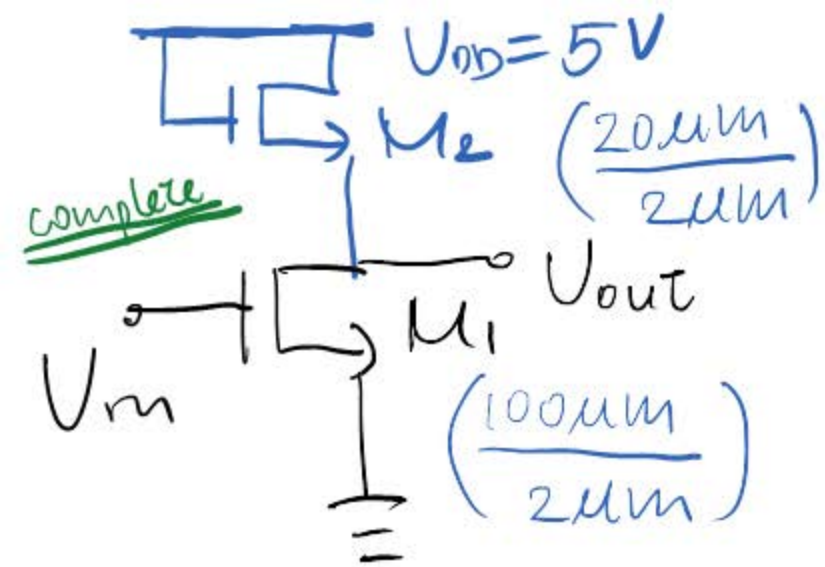 VDD=5V
M2
(20μm/2μm)
complete
Vout
Vin
M1
(100μm/2μm)